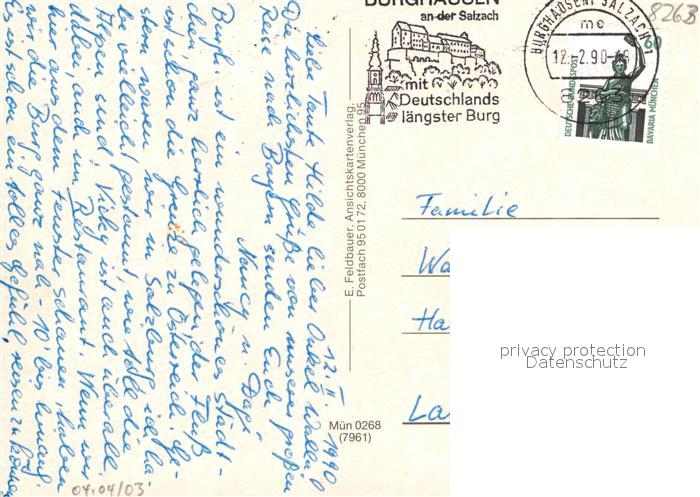 12. II. 1990
Liebe Tante Hilde, lieber Onkel Walter!
Die herzlichsten Grüße von unserer großen
Reise nach Bayern senden Euch
Nancy u. Dagi
Burgh. ist ein wunderschönes Städt-
chen, ganz herrlich gelegen, der Fluß
ist schon die Grenze zu Österreich. Ge-
stern waren wir in Salzburg, ich ha-
be vielleicht gestaunt, wie toll die
Alpen sind. Vicky ist auch überall
dabei, auch im Restaurant. Wenn wir
hier aus dem Fenster schauen, haben
wir die Burg ganz nah - 10' bis hinauf.
Es ist schon ein tolles Gefühl, reisen zu können
04.04/03
E. Feldbauer, Ansichtskartenverlag,
Postfach 950172, 8000 München 95
Mün 0268
(7961)
BURGHAUSEN
an der Salzach
mit
Deutschlands
längster Burg
BURGHAUSEN, SALZACH 1
me
12.-2.90-18
8263
60
DEUTSCHE BUNDESPOST
BAVARIA MÜNCHEN
Familie
Wa
Ha
La
privacy protection
Datenschutz